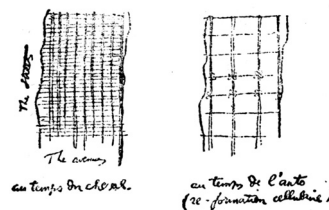 The streets
The avenues
au temps du cheval.
au temps de l'auto
(re-formation cellulaire.